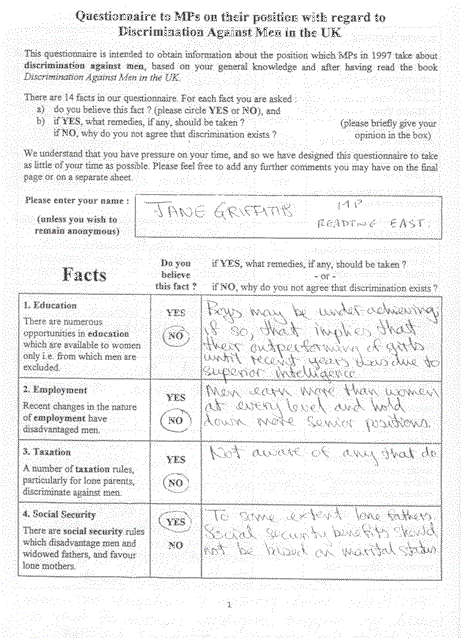 Questionnaire to MPs on their position with regard to
Discrimination Against Men in the UK
This questionnaire is intended to obtain information about the position which MPs in 1997 take about
discrimination against men, based on your general knowledge and after having read the book
Discrimination Against Men in the UK.
There are 14 facts in our questionnaire. For each fact you are asked :
a) do you believe this fact ? (please circle YES or NO), and
b) if YES, what remedies, if any, should be taken ? (please briefly give your
if NO, why do you not agree that discrimination exists ? opinion in the box)
We understand that you have pressure on your time, and so we have designed this questionnaire to take
as little of your time as possible. Please feel free to add any further comments you may have on the final
page or on a separate sheet.
Please enter your name :
(unless you wish to
remain anonymous)
JANE GRIFFITHS MP
READING EAST.
Facts
Do you
believe
this fact ?
if YES, what remedies, if any, should be taken ?
- or -
if NO, why do you not agree that discrimination exists ?
1. Education
There are numerous
opportunities in education
which are available to women
only i.e. from which men are
excluded.
YES
NO
Boys may be under-achieving,
if so, that implies that
their outperforming of girls
until recent years was due to
superior intelligence
2. Employment
Recent changes in the nature
of employment have
disadvantaged men.
YES
NO
Men earn more than women
at every level and hold
down more senior positions.
3. Taxation
A number of taxation rules,
particularly for lone parents,
discriminate against men.
YES
NO
Not aware of any that do.
4. Social Security
There are social security rules
which disadvantage men and
widowed fathers, and favour
lone mothers.
YES
NO
To some extent lone fathers.
Social security benefits should
not be based on marital status.
1